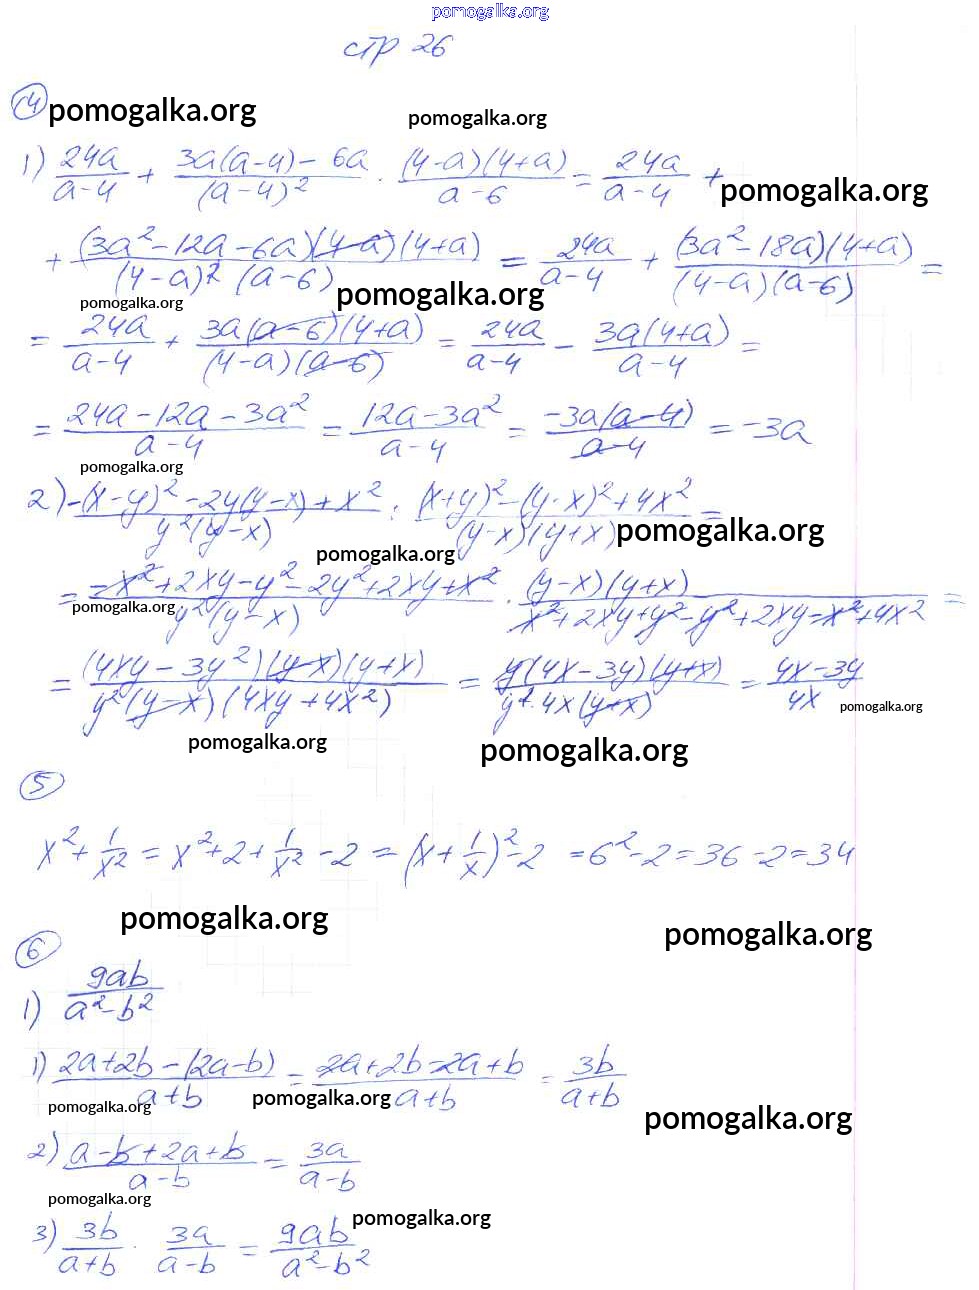 pomogalka.org
стр 26
4 pomogalka.org pomogalka.org
1) 24a/(a-4) + (3a(a-4) - 6a)/(a-4)² · (4-a)(4+a)/(a-6) = 24a/(a-4) + pomogalka.org
+ (3a²-12a-6a)(4-a)(4+a)/((4-a)²(a-6)) = 24a/(a-4) + (3a²-18a)(4+a)/((4-a)(a-6)) =
pomogalka.org pomogalka.org
= 24a/(a-4) + 3a(a-6)(4+a)/((4-a)(a-6)) = 24a/(a-4) - 3a(4+a)/(a-4) =
= (24a-12a-3a²)/(a-4) = (12a-3a²)/(a-4) = -3a(a-4)/(a-4) = -3a
pomogalka.org
2) (-(x-y)²-2y(y-x)+x²)/(y²(y-x)) : ((x+y)²-(y-x)²+4x²)/((y-x)(y+x)) =
pomogalka.org pomogalka.org
= (-x²+2xy-y²-2y²+2xy+x²)/(y²(y-x)) · (y-x)(y+x)/(x²+2xy+y²-y²+2xy-x²+4x²) =
pomogalka.org
= (4xy-3y²)(y-x)(y+x)/(y²(y-x)(4xy+4x²)) = y(4x-3y)(y+x)/(y²·4x(y+x)) = (4x-3y)/4x
pomogalka.org
pomogalka.org pomogalka.org
5
x² + 1/x² = x²+2+1/x² -2 = (x+1/x)²-2 = 6²-2=36-2=34
pomogalka.org pomogalka.org
6
1) 9ab/(a²-b²)
1) (2a+2b-(2a-b))/(a+b) = (2a+2b-2a+b)/(a+b) = 3b/(a+b)
pomogalka.org pomogalka.org pomogalka.org
2) (a-b+2a+b)/(a-b) = 3a/(a-b)
pomogalka.org pomogalka.org
3) 3b/(a+b) · 3a/(a-b) = 9ab/(a²-b²)